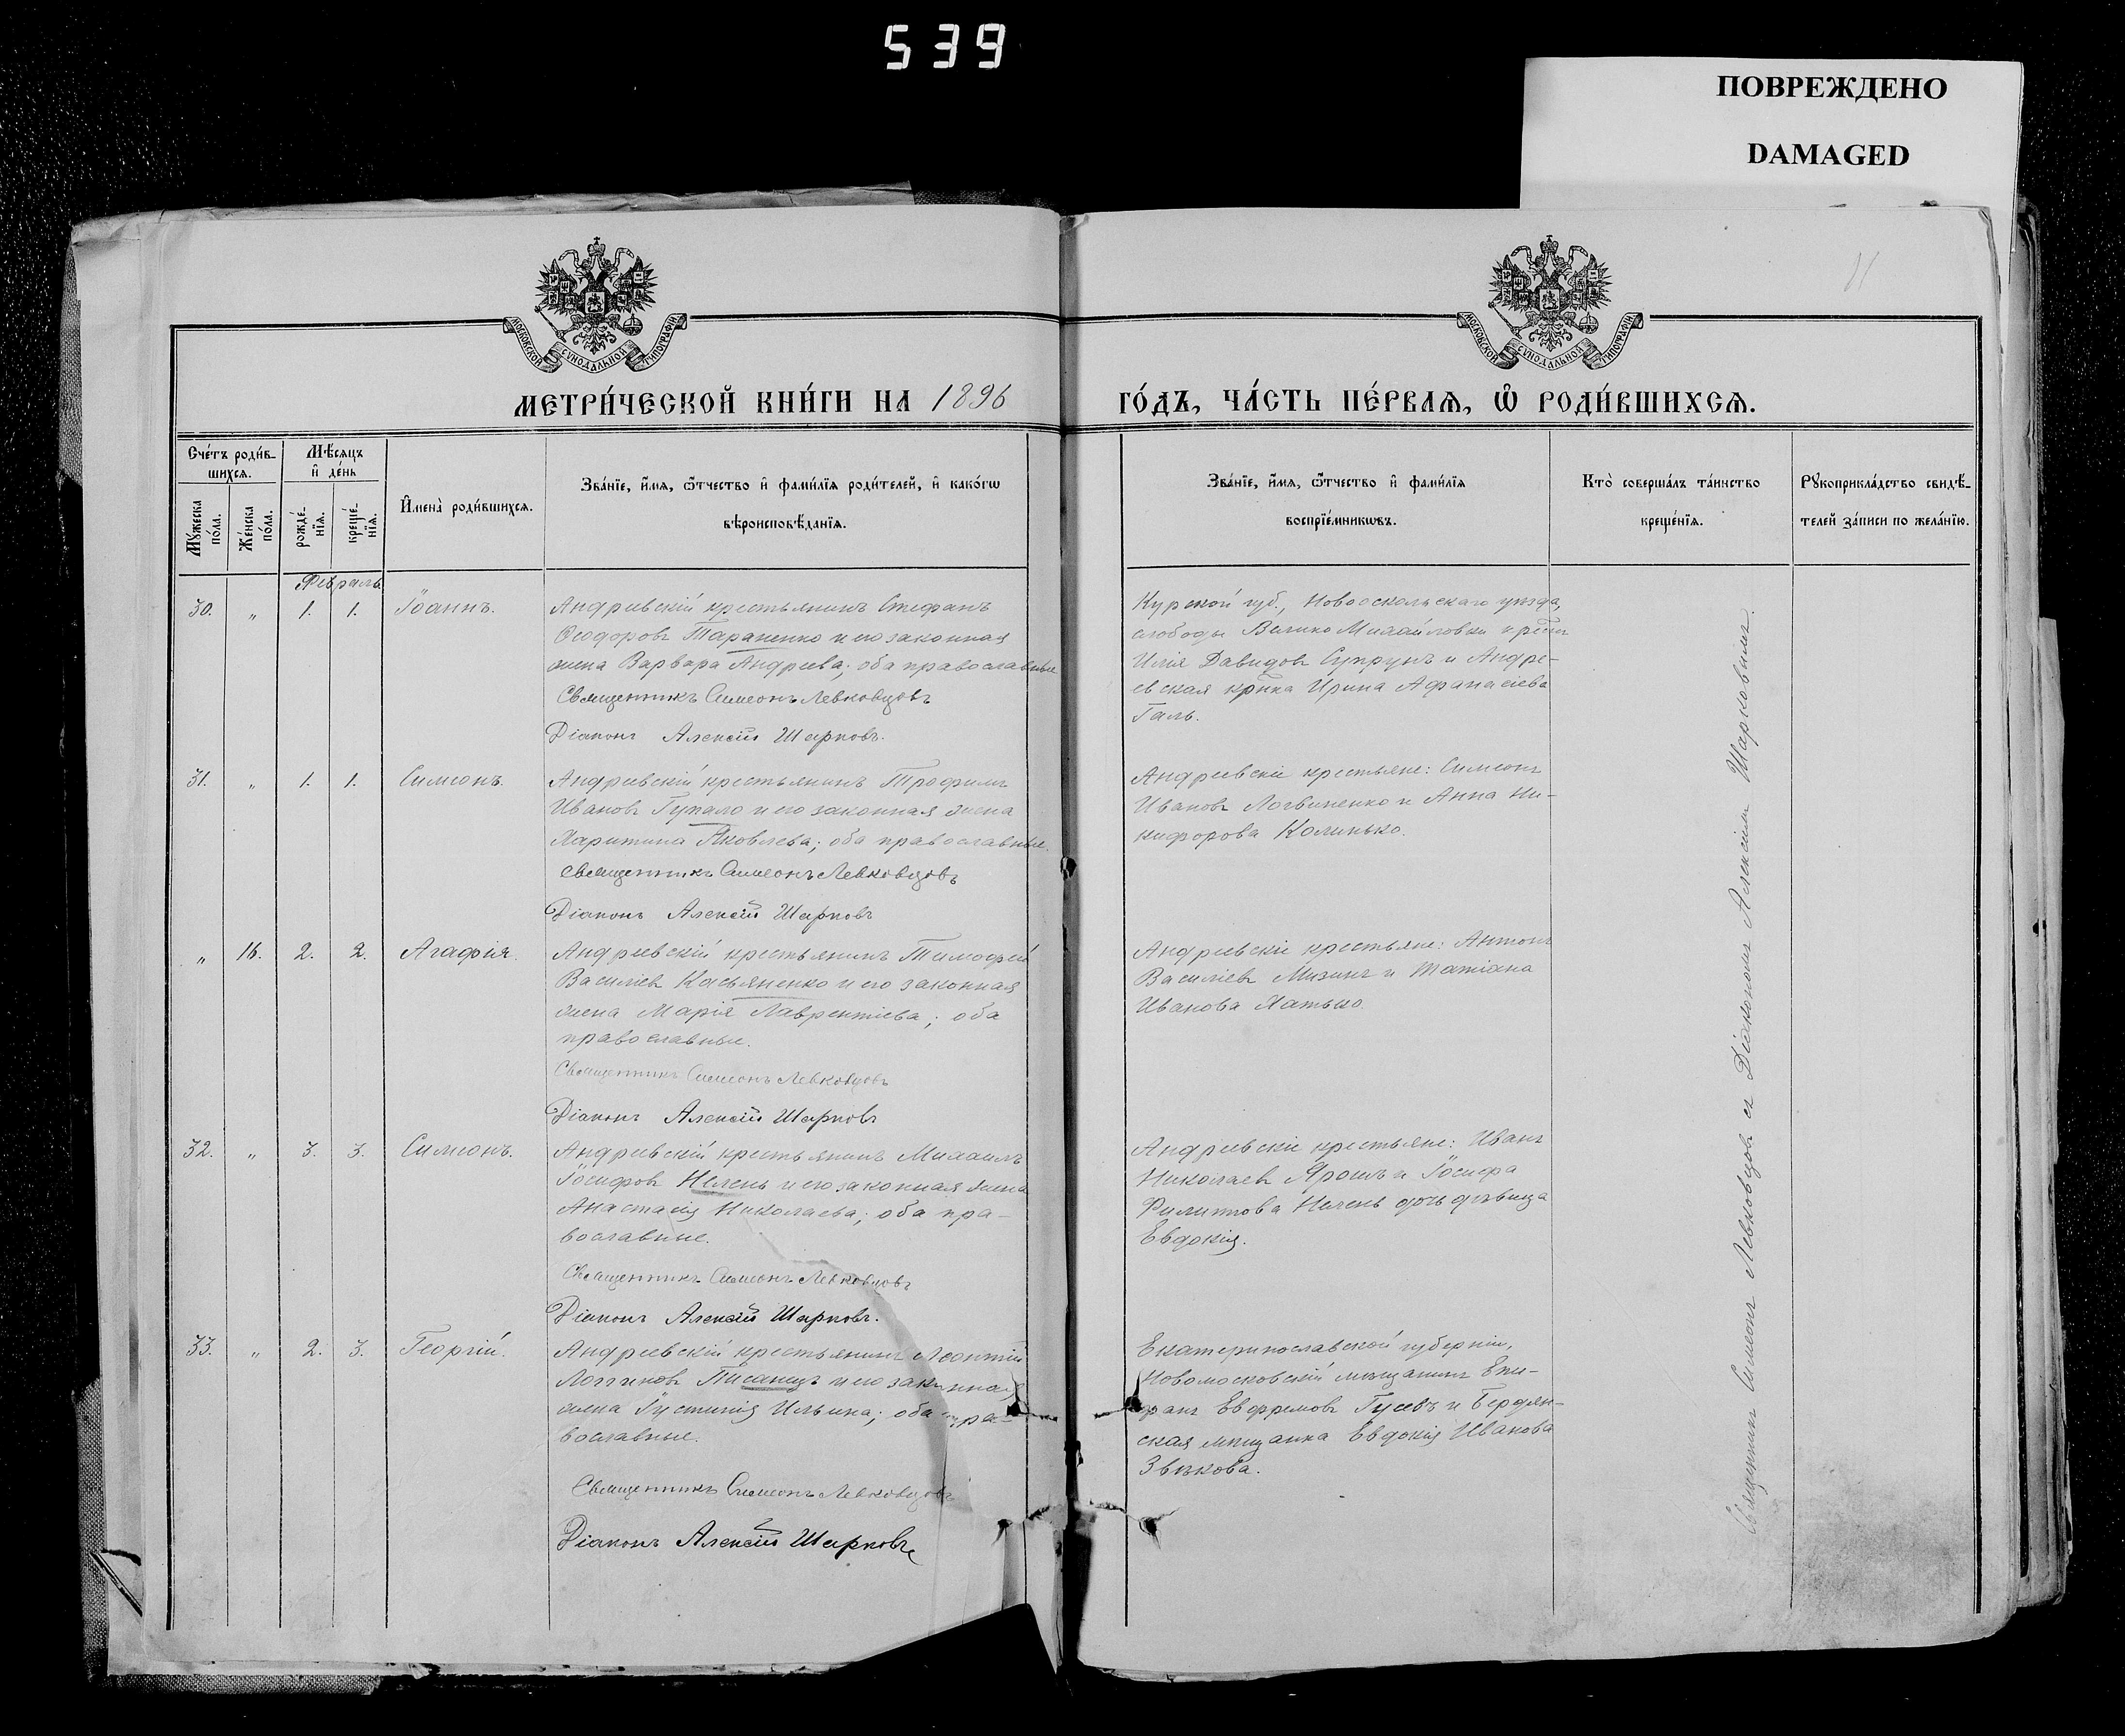 539
ПОВРЕЖДЕНО
DAMAGED
МОСКОВСКОЙ СѴНОДАЛЬНОЙ ТИПОГРАФІИ
МОСКОВСКОЙ СѴНОДАЛЬНОЙ ТИПОГРАФІИ
11
МЕТРИ́ЧЕСКОЙ КНИ́ГИ НА 1896
ГО́ДЪ, ЧА́СТЬ ПЕ́РВАѦ, Ѡ҆ РОДИ́ВШИХСѦ.
Сче́тъ роди́в-
шихсѧ.
Мѣ́сѧцъ
и҆ де́нь
Мꙋ́жеска по́ла.
Же́нска по́ла.
рожде́-нїѧ.
креще́-нїѧ.
И҆мена̀ роди́вшихсѧ.
Зва́нїе, и҆́мѧ, ѻ҆́тчество и҆ фами́лїѧ роди́телей, и҆ како́гѡ
вѣроисповѣ́данїѧ.
Зва́нїе, и҆́мѧ, ѻ҆́тчество и҆ фами́лїѧ
воспрїе́мникѡвъ.
Кто̀ соверша́лъ та́инство
креще́нїѧ.
Рꙋкоприкла́дство свидѣ́-
телей за́писи по жела́нїю.
Февраль
30. " 1. 1. Іоаннъ.
Андреевскій крестьянинъ Стефанъ
Ѳеодоровъ Тараненко и его законная
жена Варвара Андреева; оба православные
Священникъ Симеонъ Левковцовъ
Діаконъ Алексій Шарковъ.
Курской губ., Новооскольскаго уѣзда,
слободы Велико Михайловки крест.
Илія Давидовъ Супрунъ и Андре-
евская кр-нка Ирина Афанасіева
Галь.
31. " 1. 1. Симеонъ.
Андреевскій крестьянинъ Трофимъ
Ивановъ Гупало и его законная жена
Харитина Яковлева; оба православные.
Священникъ Симеонъ Левковцовъ
Діаконъ Алексій Шарковъ
Андреевскіе крестьяне: Симеонъ
Ивановъ Логвиненко и Анна Ни-
кифорова Колинько.
" 16. 2. 2. Агафія.
Андреевскій крестьянинъ Тимофей
Василіевъ Касьяненко и его законная
жена Марія Лаврентіева; оба
православные.
Священникъ Симеонъ Левковцовъ
Діаконъ Алексій Шарковъ
Андреевскіе крестьяне: Антонъ
Василіевъ Мизинъ и Татіана
Иванова Хатько.
32. " 3. 3. Симеонъ.
Андреевскій крестьянинъ Михаилъ
Іосифовъ Нелень и его законная жена
Анастасія Николаева; оба пра-
вославные.
Священникъ Симеонъ Левковцовъ
Діаконъ Алексій Шарковъ.
Андреевскіе крестьяне: Иванъ
Николаевъ Ярошъ и Іосифа
Филиппова Нелень дочь дѣвица
Евдокія.
33. " 2. 3. Георгій.
Андреевскій крестьянинъ Леонтій
Логгиновъ Писанецъ и его законная
жена Іустинія Ильина; оба пра-
вославные.
Священникъ Симеонъ Левковцовъ
Діаконъ Алексій Шарковъ
Екатеринославской губерніи,
Новомосковскій мѣщанинъ Епи-
фанъ Евфремовъ Гусевъ и Бердян-
ская мѣщанка Евдокія Иванова
Звѣкова.
Священникъ Симеонъ Левковцовъ съ Діакономъ Алексіемъ Шарковымъ.